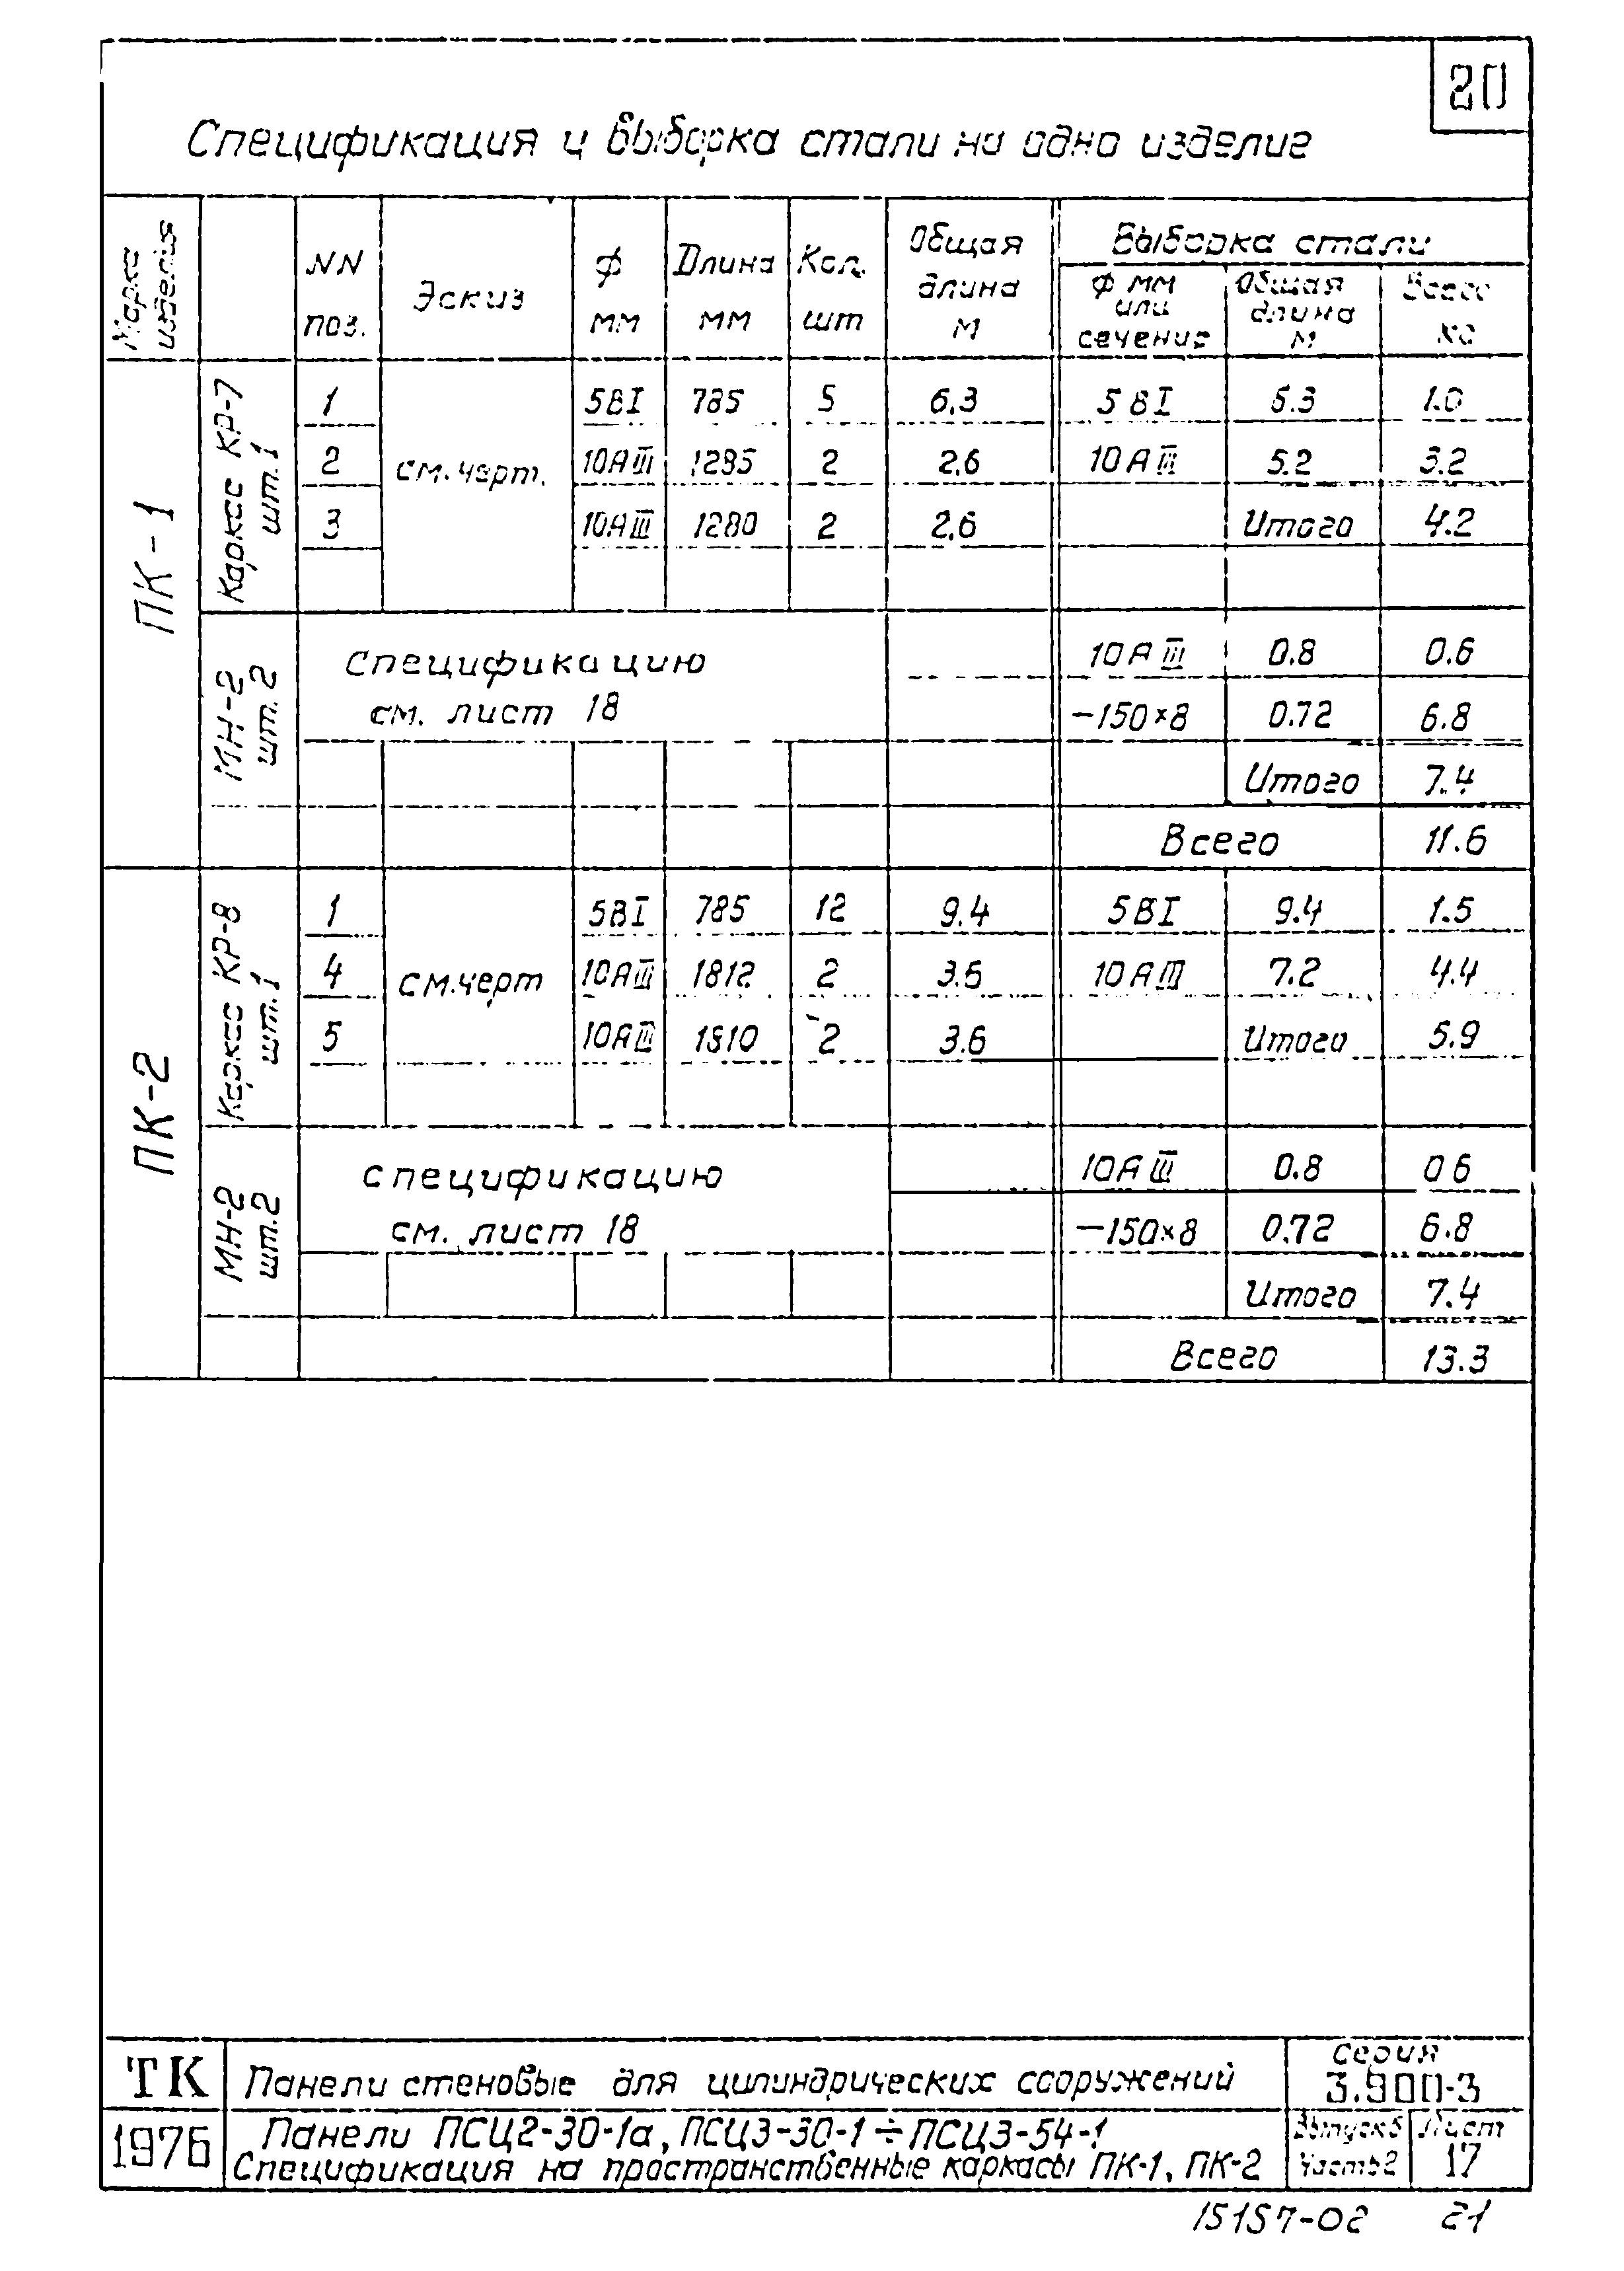 20
Спецификация и выборка стали на одно изделие
Марка изделия
NN поз.
Эскиз
Ф мм
Длина мм
Кол. шт
Общая длина м
Выборка стали
Ф мм или сечение
Общая длина м
Всего кг
ПК-1
Каркас КР-7 шт.1
1 5ВI 785 5 6.3 5ВI 6.3 1.0
2 см.черт. 10АIII 1285 2 2.6 10АIII 5.2 3.2
3 10АIII 1280 2 2.6 Итого 4.2
МН-2 шт.2
Спецификацию 10АIII 0.8 0.6
см. лист 18 -150×8 0.72 6.8
Итого 7.4
Всего 11.6
ПК-2
Каркас КР-8 шт.1
1 5ВI 785 12 9.4 5ВI 9.4 1.5
4 см.черт 10АIII 1812 2 3.6 10АIII 7.2 4.4
5 10АIII 1810 2 3.6 Итого 5.9
МН-2 шт.2
спецификацию 10АIII 0.8 0 6
см. лист 18 -150×8 0.72 6.8
Итого 7.4
Всего 13.3
ТК Панели стеновые для цилиндрических сооружений Серия 3.900-3
1976 Панели ПСЦ2-30-1а, ПСЦ3-30-1÷ПСЦ3-54-1 Выпуск 5 Лист
Спецификация на пространственные каркасы ПК-1, ПК-2 Часть 2 17
15157-02 21